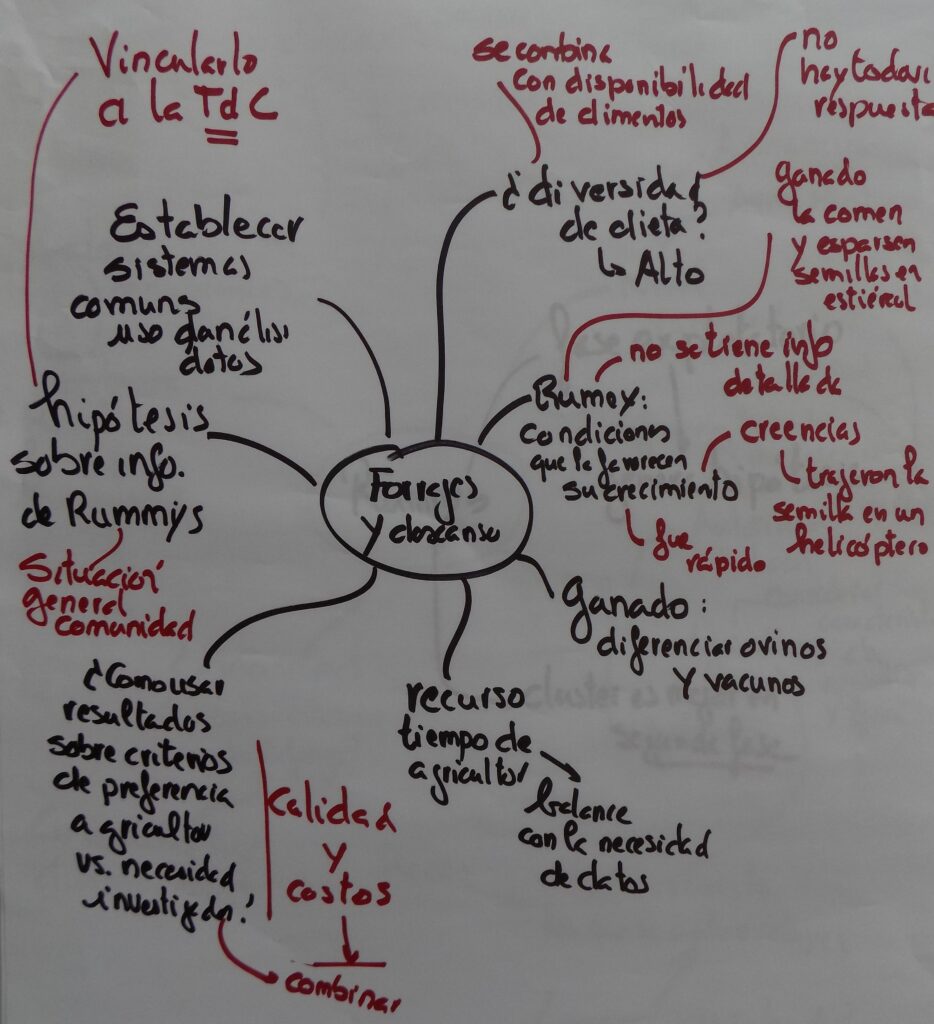 Vincularlo
a la TdC
se combina
con disponibilidad
de alimentos
no
hay todav
respuesta
¿diversidad
de dieta?
↳ Alto
ganado
la comen
y esparsen
semillas en
estiércol
Establecer
sistemas
comuns
uso d análisi
datos
no se tiene info
detallada
Rumex:
condiciones
que la favorecen
su crecimiento
creencias
trajeron la
semilla en un
helicóptero
fue
rápido
hipótesis
sobre info.
de Rummys
Situación
general
comunidad
Forrajes
y descanso
Ganado:
diferenciar ovinos
y vacunos
recurso
tiempo de
agricultor
balance
con la necesidad
de datos
¿Como usar
resultados
sobre criterios
de preferencia
agricultor
vs. necesidad
investigador?
Calidad
y
costos
combinar
cluster es mejor en
segunda fase